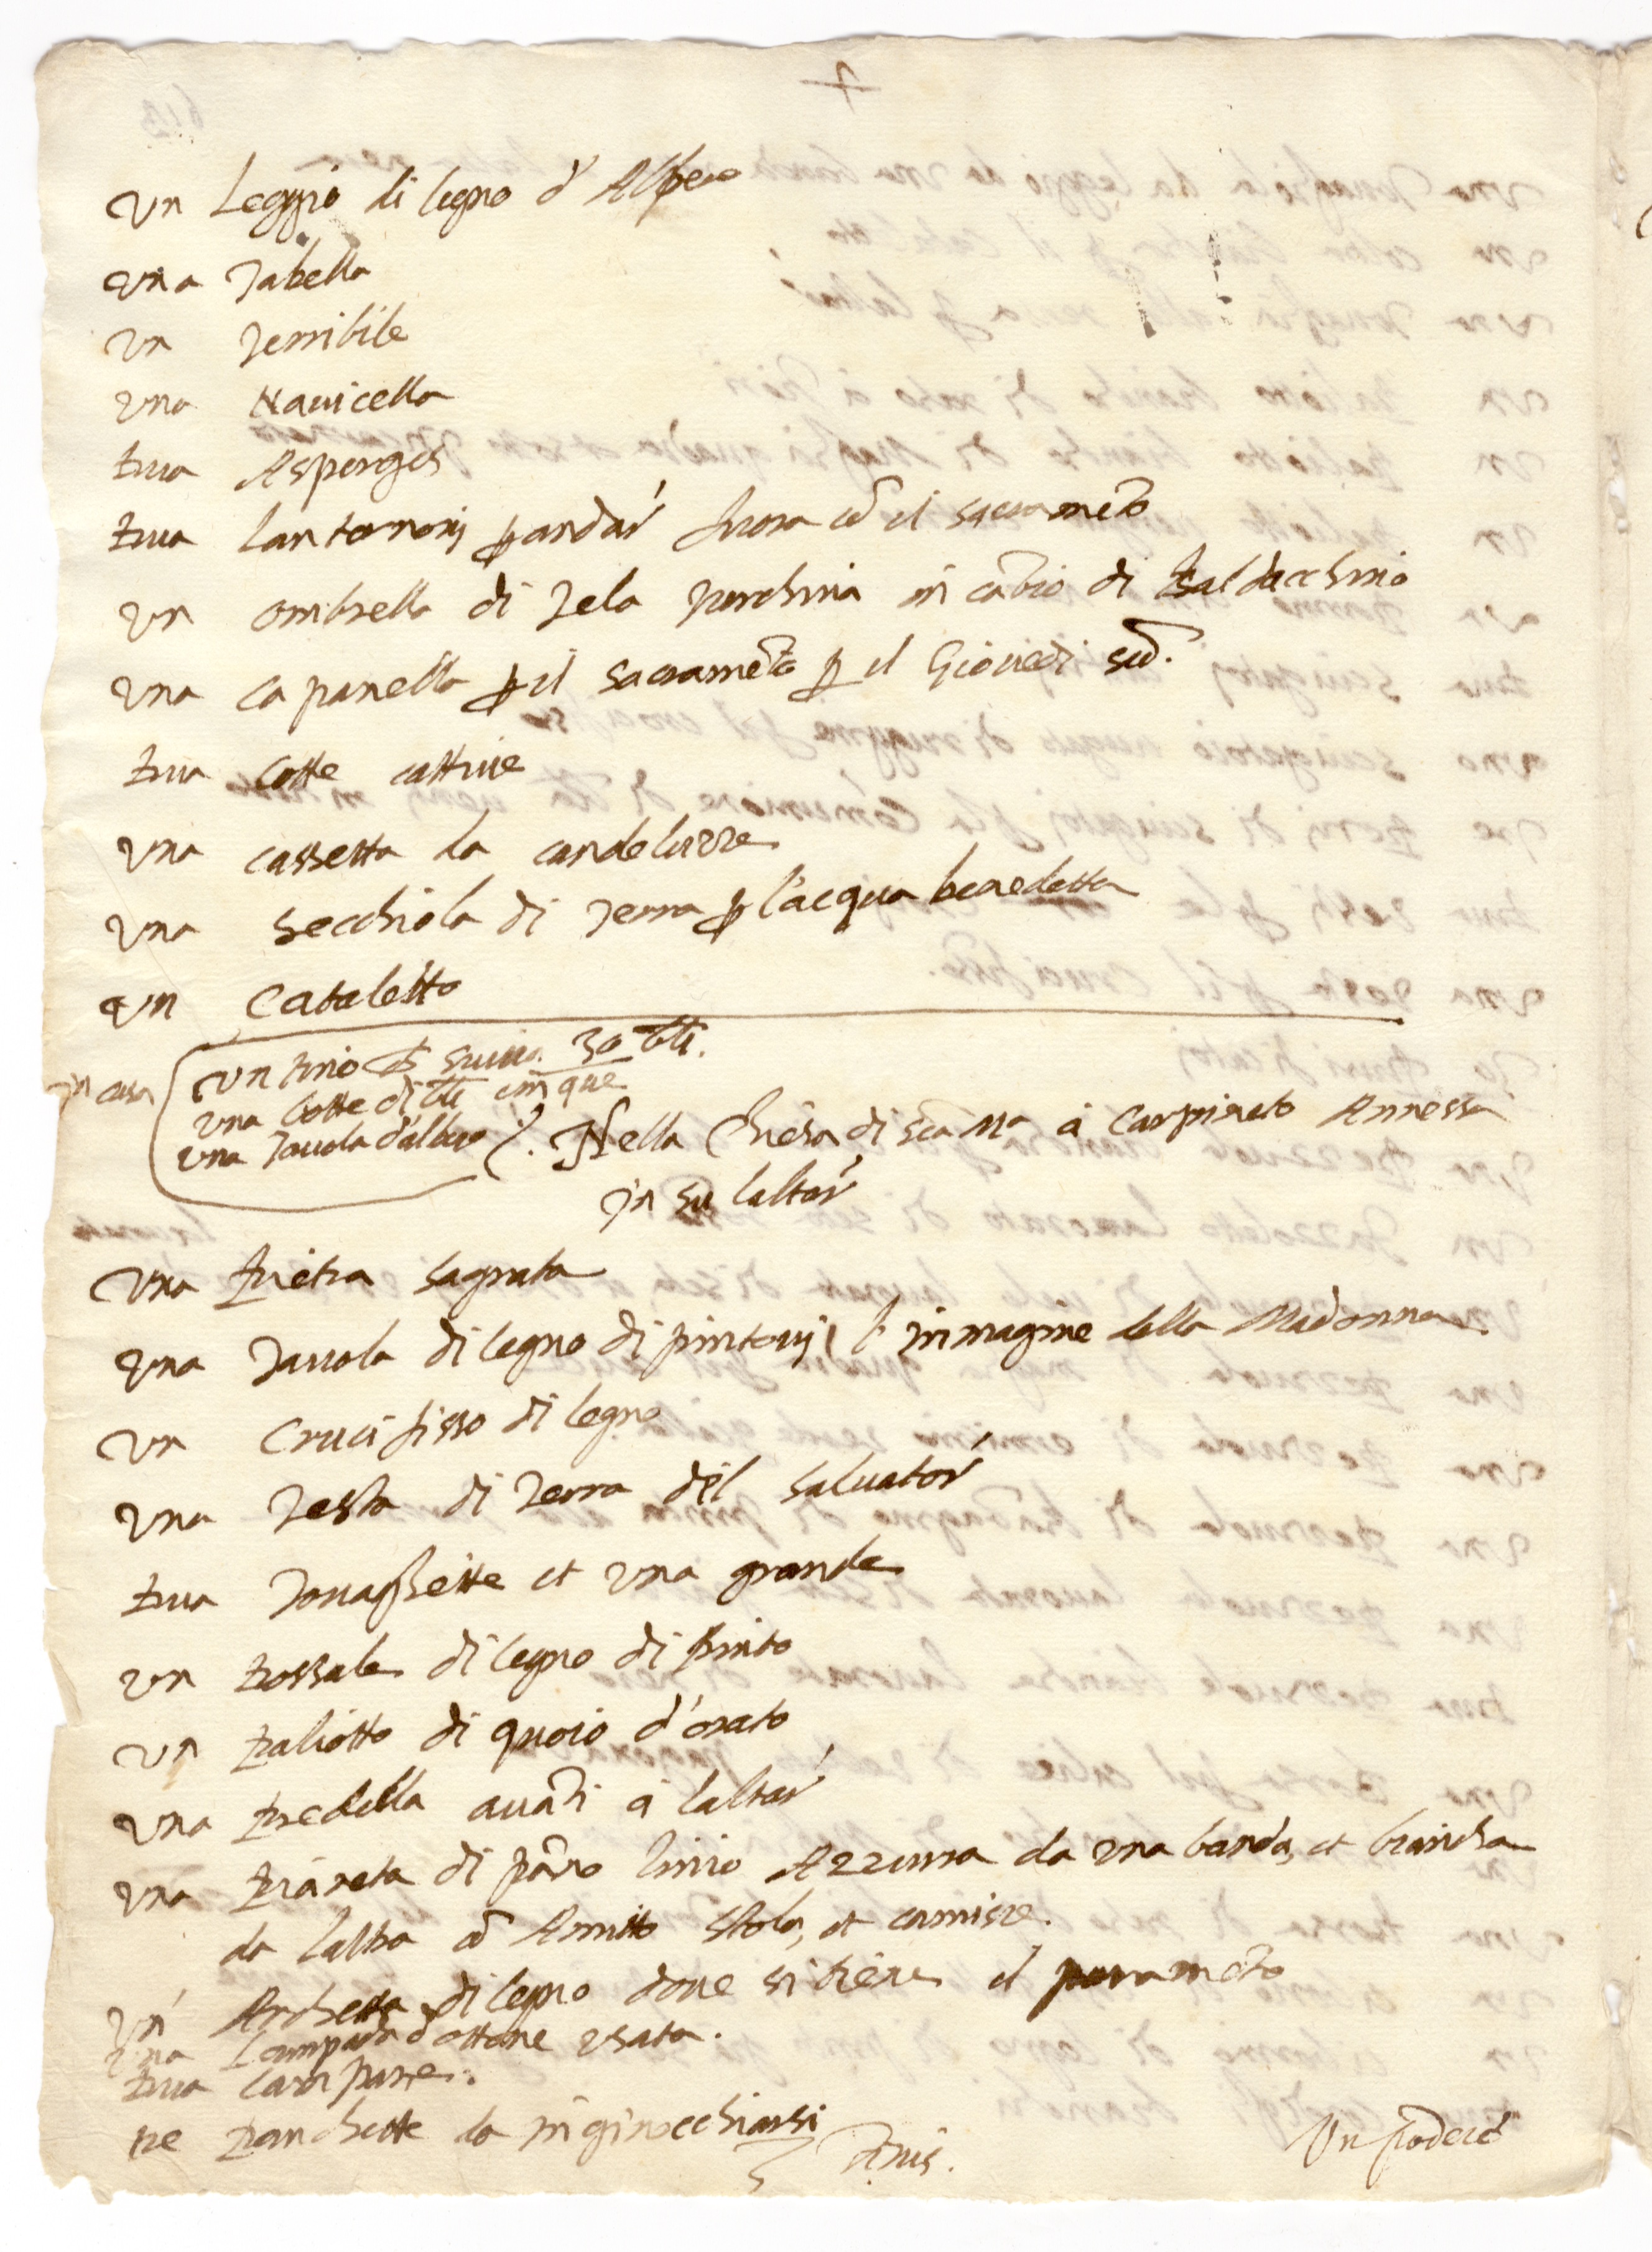 Un Leggio di legno d'Albero
una Tabella
un Terribile
una Nauicella
dua Asperges
dua lanternonj p andar fuora cõ il sacramẽto
un ombrella di Tela Turchina in cãbio di Baldacchino
una capanella p il sacramẽto p il Giouedi sto.
dua Cotte cattiue
una cassetta da candeluzze
una secchiola di terra p l'acqua benedetta
un Cataletto
in casa
un tino di 30 btti.
una botte di btti cinque
una Tauola d'albero
Nella Chiesa di Sca Ma à Carpineto Annessa
in su laltar
una pietra sagrata
una Tauola di legno dipintouj l'inmagine della Madonna
un Crucifisso di legno
una Testa di terra del saluator
dua Touagliette et una grande
un dossale di legno dipinto
un paliotto di quoio d'orato
una predella auãti à laltar
una pianeta di pãno lino Azzurra da una banda, et biancha
da laltra cõ Amitto stola, et camisce.
un Archetta di legno doue si tiene il paramẽto
una Lampada d'ottone usata.
dua Campane.
tre panchette da inginocchiarsi
Finis.
Un podere